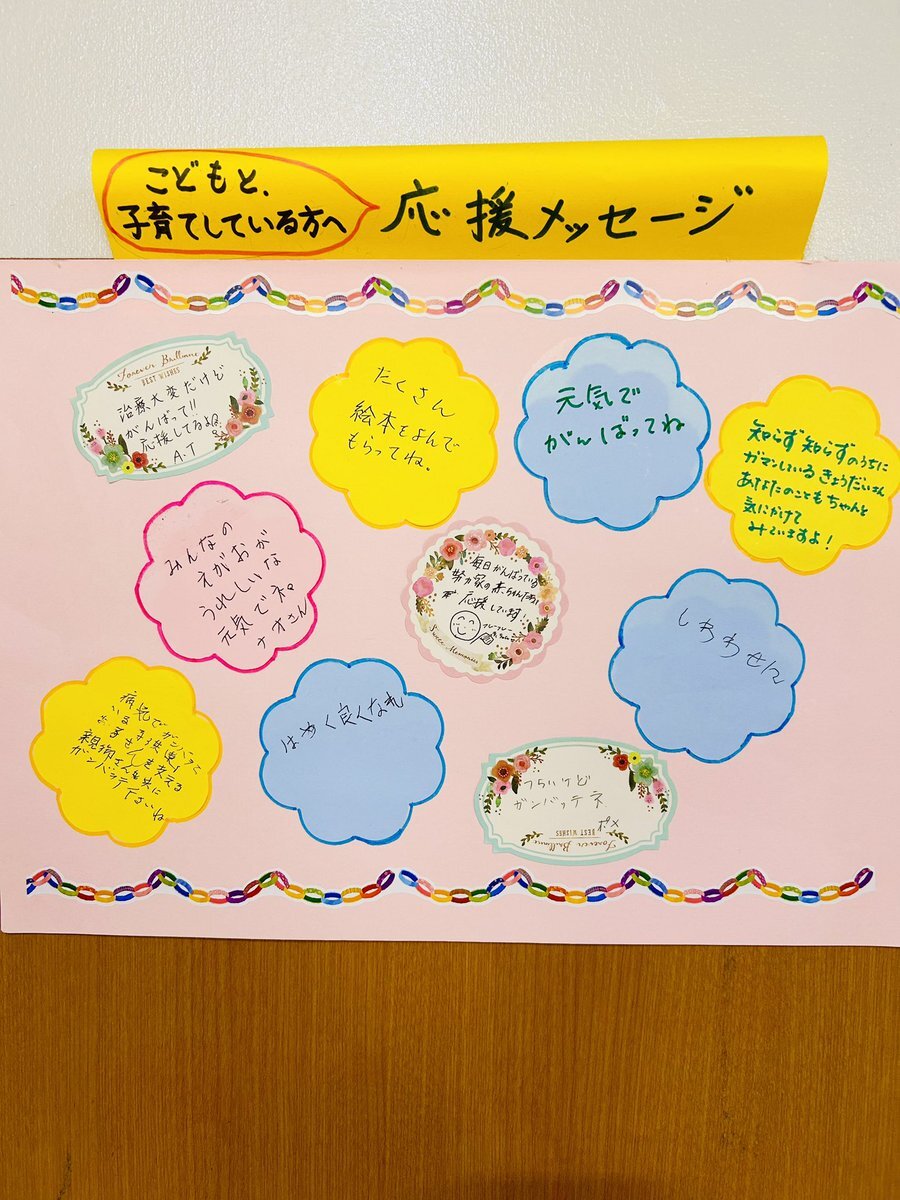 こどもと、
子育てしている方へ
応援メッセージ
Forever Brilliance
BEST WISHES
治療大変だけど
がんばって!!
応援してるよ
A.T
たくさん
絵本をよんで
もらってね。
元気で
がんばってね
知らず知らずのうちに
ガマンしているきょうだいさん
あなたのこともちゃんと
気にかけて
みていますよ!
みんなの
えがおが
うれしいな
元気でネ。
ナオさん
毎日がんばっている
努力家の赤ちゃん
応援しています!
フレーフレー
Sweet Memories
しあわせに
病気でガンバって
いる
子さんを支える
親御さんも共に
ガンバッテ下さいね
はやく良くなれ
つらいけど
ガンバッテネ
BEST WISHES
Forever Brilliance